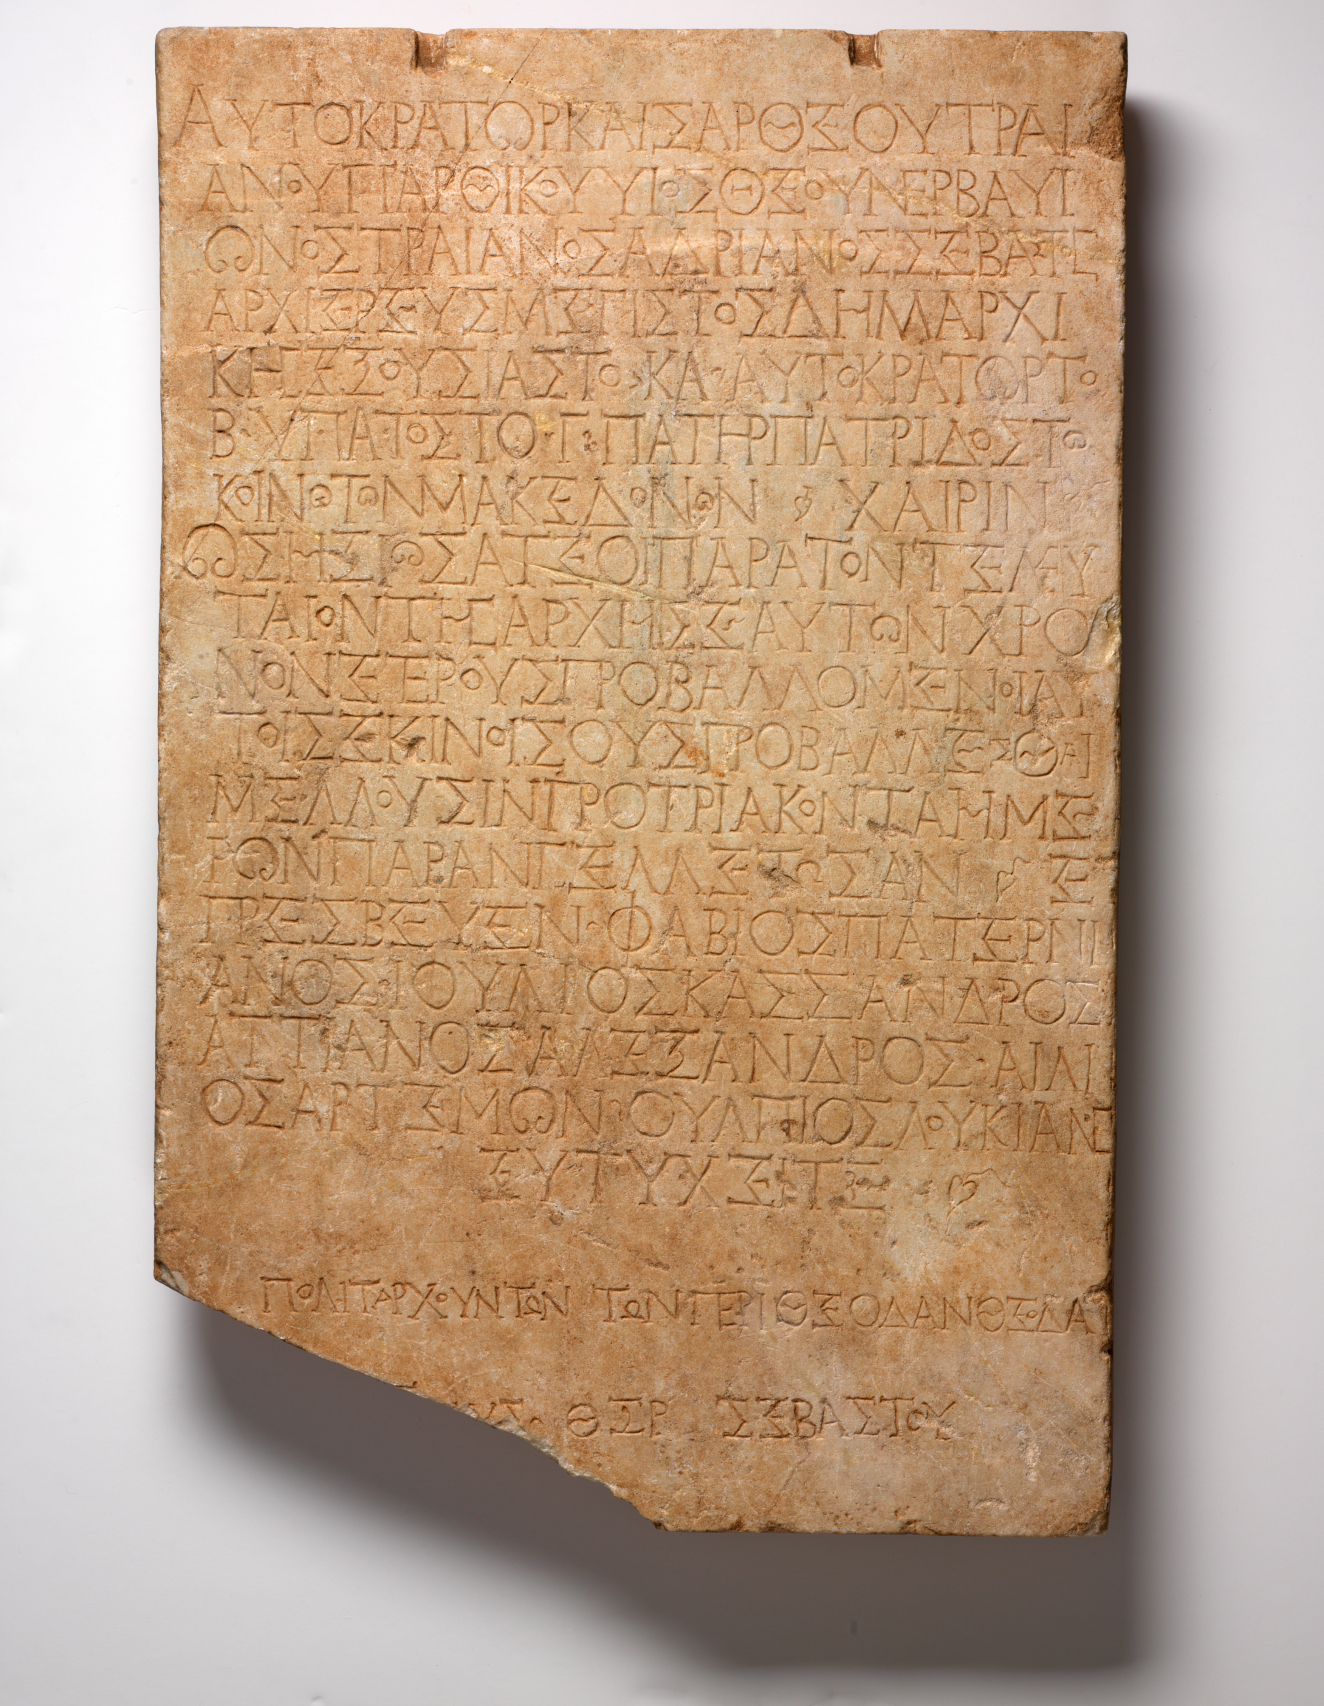 ΑΥΤΟΚΡΑΤΩΡΚΑΙΣΑΡΘΕΟΥΤΡΑΙ
ΑΝΟΥΠΑΡΘΙΚΟΥΥΙΟΣΘΕΟΥΝΕΡΒΑΥΙ
ΩΝΟΣΤΡΑΙΑΝΟΣΑΔΡΙΑΝΟΣΣΕΒΑΣΤΣ
ΑΡΧΙΕΡΕΥΣΜΕΓΙΣΤΟΣΔΗΜΑΡΧΙ
ΚΗΣΕΞΟΥΣΙΑΣΤΟ ΚΑ ΑΥΤΟΚΡΑΤΩΡΤΟ
Β ΥΠΑΤΟΣΤΟ Γ ΠΑΤΗΡΠΑΤΡΙΔΟΣΤΩ
ΚΟΙΝΩΤΩΝΜΑΚΕΔΟΝΩΝ ΧΑΙΡΙΝ
ΩΣΗΣΙΩΣΑΤΕΟΙΠΑΡΑΤΟΝΤΕΛΕΥ
ΤΑΙΟΝΤΗΣΑΡΧΗΣΕΑΥΤΩΝΧΡΟ
ΝΟΝΕΤΕΡΟΥΣΠΡΟΒΑΛΛΟΜΕΝΟΙΑΥ
ΤΟΙΣΕΚΙΝΟΙΣΟΥΣΠΡΟΒΑΛΛΕΣΘΑΙ
ΜΕΛΛΟΥΣΙΝΠΡΟΤΡΙΑΚΟΝΤΑΗΜΕ
ΡΩΝΠΑΡΑΝΓΕΛΛΕΤΩΣΑΝ Ε
ΠΡΕΣΒΕΥΕΝ ΦΑΒΙΟΣΠΑΤΕΡΝΙ
ΑΝΟΣ ΙΟΥΛΙΟΣΚΑΣΣΑΝΔΡΟΣ
ΑΤΤΙΑΝΟΣΑΛΕΞΑΝΔΡΟΣ ΑΙΛΙ
ΟΣΑΡΤΕΜΩΝ ΟΥΛΠΙΟΣΛΟΥΚΙΑΝΟΣ
ΕΥΤΥΧΕΙΤΕ
ΠΟΛΙΤΑΡΧΟΥΝΤΩΝ ΤΩΝΠΕΡΙΘΕΟΔΑΝΘΕΟΔΑ
ΘΞΡ ΣΕΒΑΣΤΟΥ